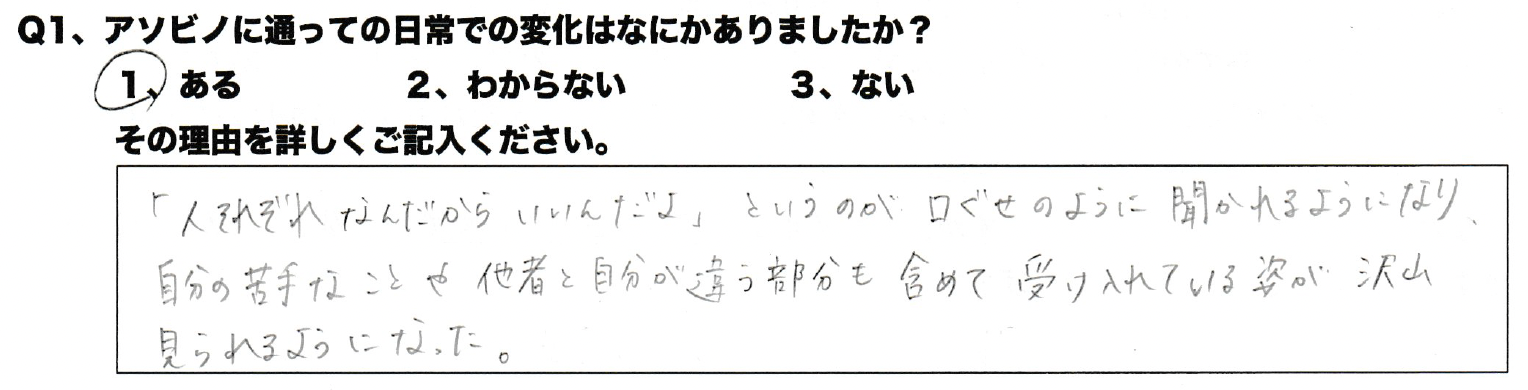 Q1、アソビノに通っての日常での変化はなにかありましたか？
1、ある 2、わからない 3、ない
その理由を詳しくご記入ください。
「人それぞれなんだからいいんだよ」というのが口ぐせのように聞かれるようになり、
自分の苦手なことや他者と自分が違う部分も含めて受け入れている姿が沢山
見られるようになった。